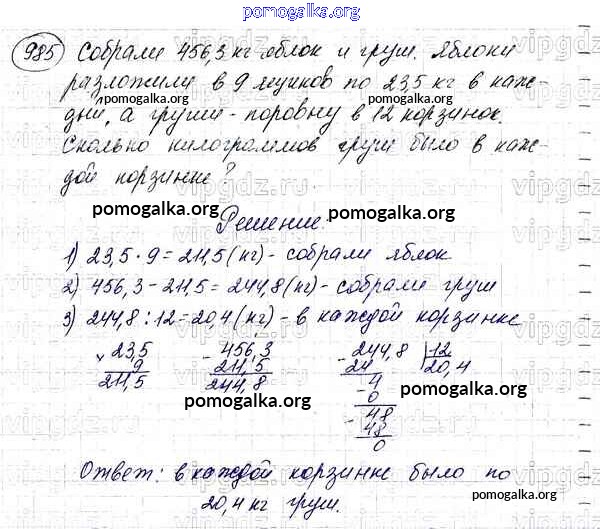 pomogalka.org
985 Собрали 456,3 кг яблок и груш. Яблоки
разложили в 9 ящиков по 23,5 кг в каж-
pomogalka.org pomogalka.org
дый, а груши - поровну в 12 корзинок.
Сколько килограммов груш было в каж-
дой корзинке?
pomogalka.org pomogalka.org
Решение.
1) 23,5 · 9 = 211,5 (кг) - собрали яблок
2) 456,3 - 211,5 = 244,8 (кг) - собрали груш
3) 244,8 : 12 = 20,4 (кг) - в каждой корзинке
× 23,5 - 456,3 - 244,8 | 12
9 211,5 24 20,4
211,5 244,8 - 4
pomogalka.org pomogalka.org
0
- 48
48
0
Ответ: в каждой корзинке было по
20,4 кг груш.
pomogalka.org
vipgdz.ru